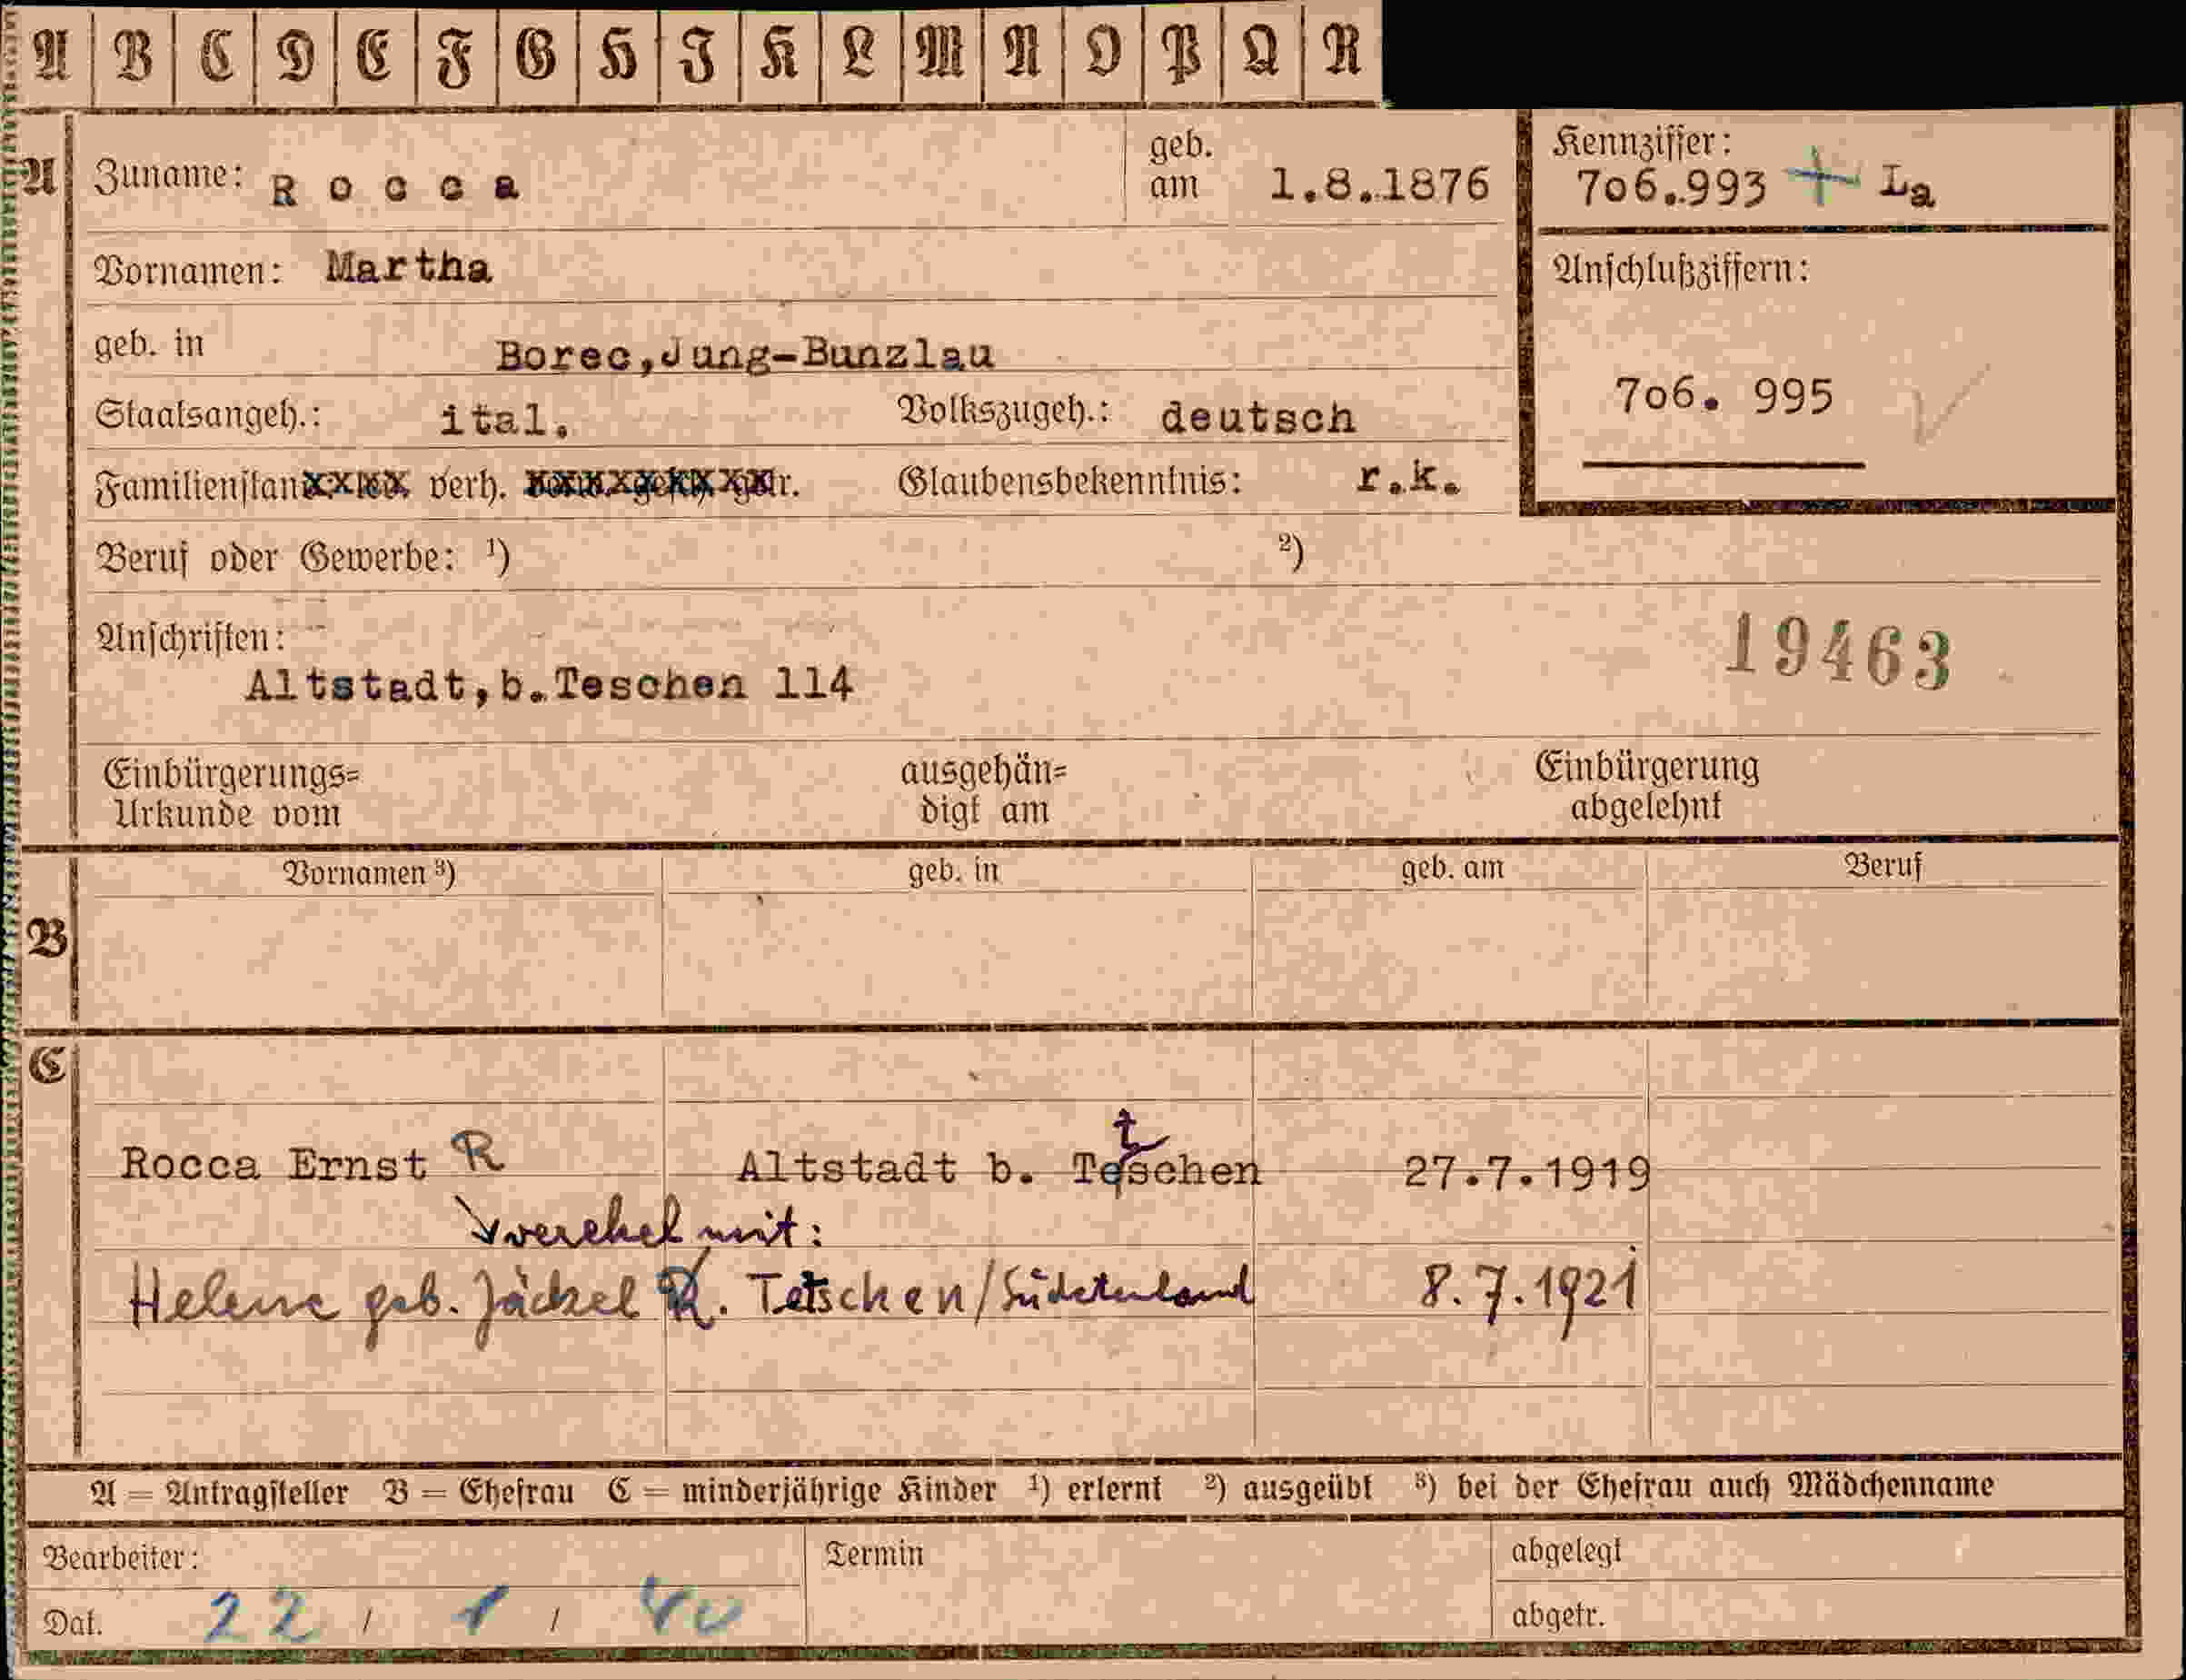 A B C D E F G H I K L M N O P Q R
A Zuname: Rocca geb. am 1.8.1876
Kennziffer: 706.993 + La
Vornamen: Martha
Anschlußziffern:
geb. in Borec,Jung-Bunzlau
706. 995
Staatsangeh.: ital. Volkszugeh.: deutsch
Familienstan verh. tr. Glaubensbekenntnis: r.k.
Beruf oder Gewerbe: ¹) ²)
Anschriften:
19463
Altstadt,b.Teschen 114
Einbürgerungs= ausgehän= Einbürgerung
Urkunde vom digt am abgelehnt
Vornamen ³) geb. in geb. am Beruf
B
C
t
Rocca Ernst R Altstadt b. Teschen 27.7.1919
verehel mit:
Helene geb. Jäckel R. Tetschen/Sudetenland 8.7.1921
A = Antragsteller B = Ehefrau C = minderjährige Kinder ¹) erlernt ²) ausgeübt ³) bei der Ehefrau auch Mädchenname
Bearbeiter: Termin abgelegt
Dat. 22 / 1 / 40 abgetr.